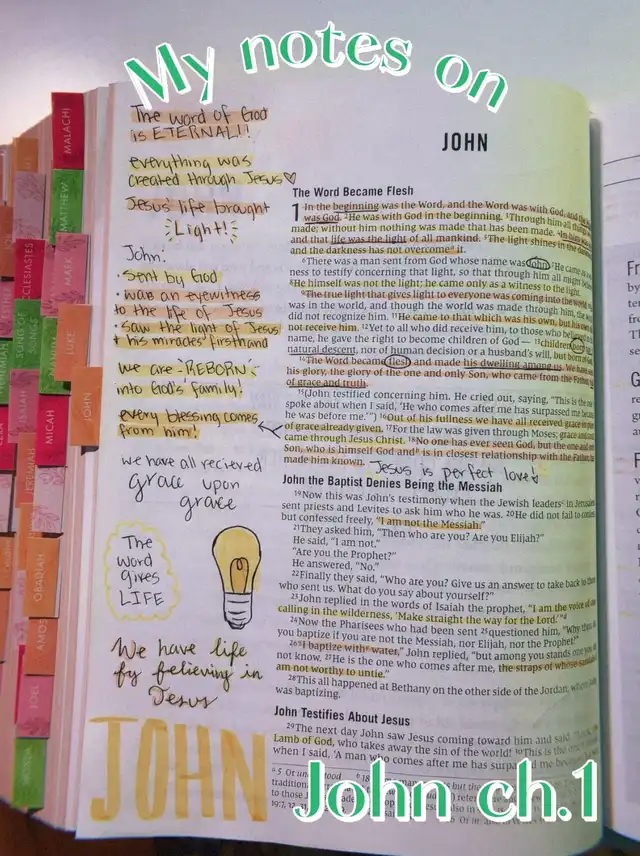 My notes on
MALACHI
MATTHEW
ECCLESIASTES
MARK
SONG OF
SONGS
LUKE
ISAIAH
MICAH
JOHN
JEREMIAH
OBADIAH
AMOS
JOEL
The word of God
is ETERNAL!!
everything was
created through Jesus♡
Jesus' life brought
Light!
John:
• sent by God
• was an eyewitness
to the life of Jesus
• saw the light of Jesus
& his miracles firsthand
we are REBORN
into God's family!
every blessing comes
from him!
we have all recieved
grace upon
grace
The
word
gives
LIFE
We have life
by believing in
Jesus
JOHN
JOHN
The Word Became Flesh
1 In the beginning was the Word, and the Word was with God, and the
was God. 2He was with God in the beginning. 3Through him all things
made; without him nothing was made that has been made. 4In him
and that life was the light of all mankind. 5The light shines in the
and the darkness has not overcome it.
6There was a man sent from God whose name was John. 7He came as a
ness to testify concerning that light, so that through him all might
8He himself was not the light; he came only as a witness to the light.
9The true light that gives light to everyone was coming into the world.
was in the world, and though the world was made through him, the
did not recognize him. 11He came to that which was his own, but his own
not receive him. 12Yet to all who did receive him, to those who
name, he gave the right to become children of God— 13children
natural descent, nor of human decision or a husband's will, but
14The Word became flesh and made his dwelling among us. We have
his glory, the glory of the one and only Son, who came from the Father,
of grace and truth.
15(John testified concerning him. He cried out, saying, "This is the
spoke about when I said, 'He who comes after me has surpassed me because
he was before me.'") 16Out of his fullness we have all received grace in
of grace already given. 17For the law was given through Moses; grace and
came through Jesus Christ. 18No one has ever seen God, but the one and
Son, who is himself God and is in closest relationship with the Father, has
made him known. Jesus is perfect love♡
John the Baptist Denies Being the Messiah
19Now this was John's testimony when the Jewish leaders in Jerusalem
sent priests and Levites to ask him who he was. 20He did not fail to confess,
but confessed freely, "I am not the Messiah."
21They asked him, "Then who are you? Are you Elijah?"
He said, "I am not."
"Are you the Prophet?"
He answered, "No."
22Finally they said, "Who are you? Give us an answer to take back to those
who sent us. What do you say about yourself?"
23John replied in the words of Isaiah the prophet, "I am the voice of one
calling in the wilderness, 'Make straight the way for the Lord.'"
24Now the Pharisees who had been sent 25questioned him, "Why then do
you baptize if you are not the Messiah, nor Elijah, nor the Prophet?"
26"I baptize with water," John replied, "but among you stands one you do
not know. 27He is the one who comes after me, the straps of whose sandals
am not worthy to untie."
28This all happened at Bethany on the other side of the Jordan, where John
was baptizing.
John Testifies About Jesus
29The next day John saw Jesus coming toward him and said,
Lamb of God, who takes away the sin of the world! 30This is the
when I said, 'A man who comes after me has surpassed me because
John ch.1